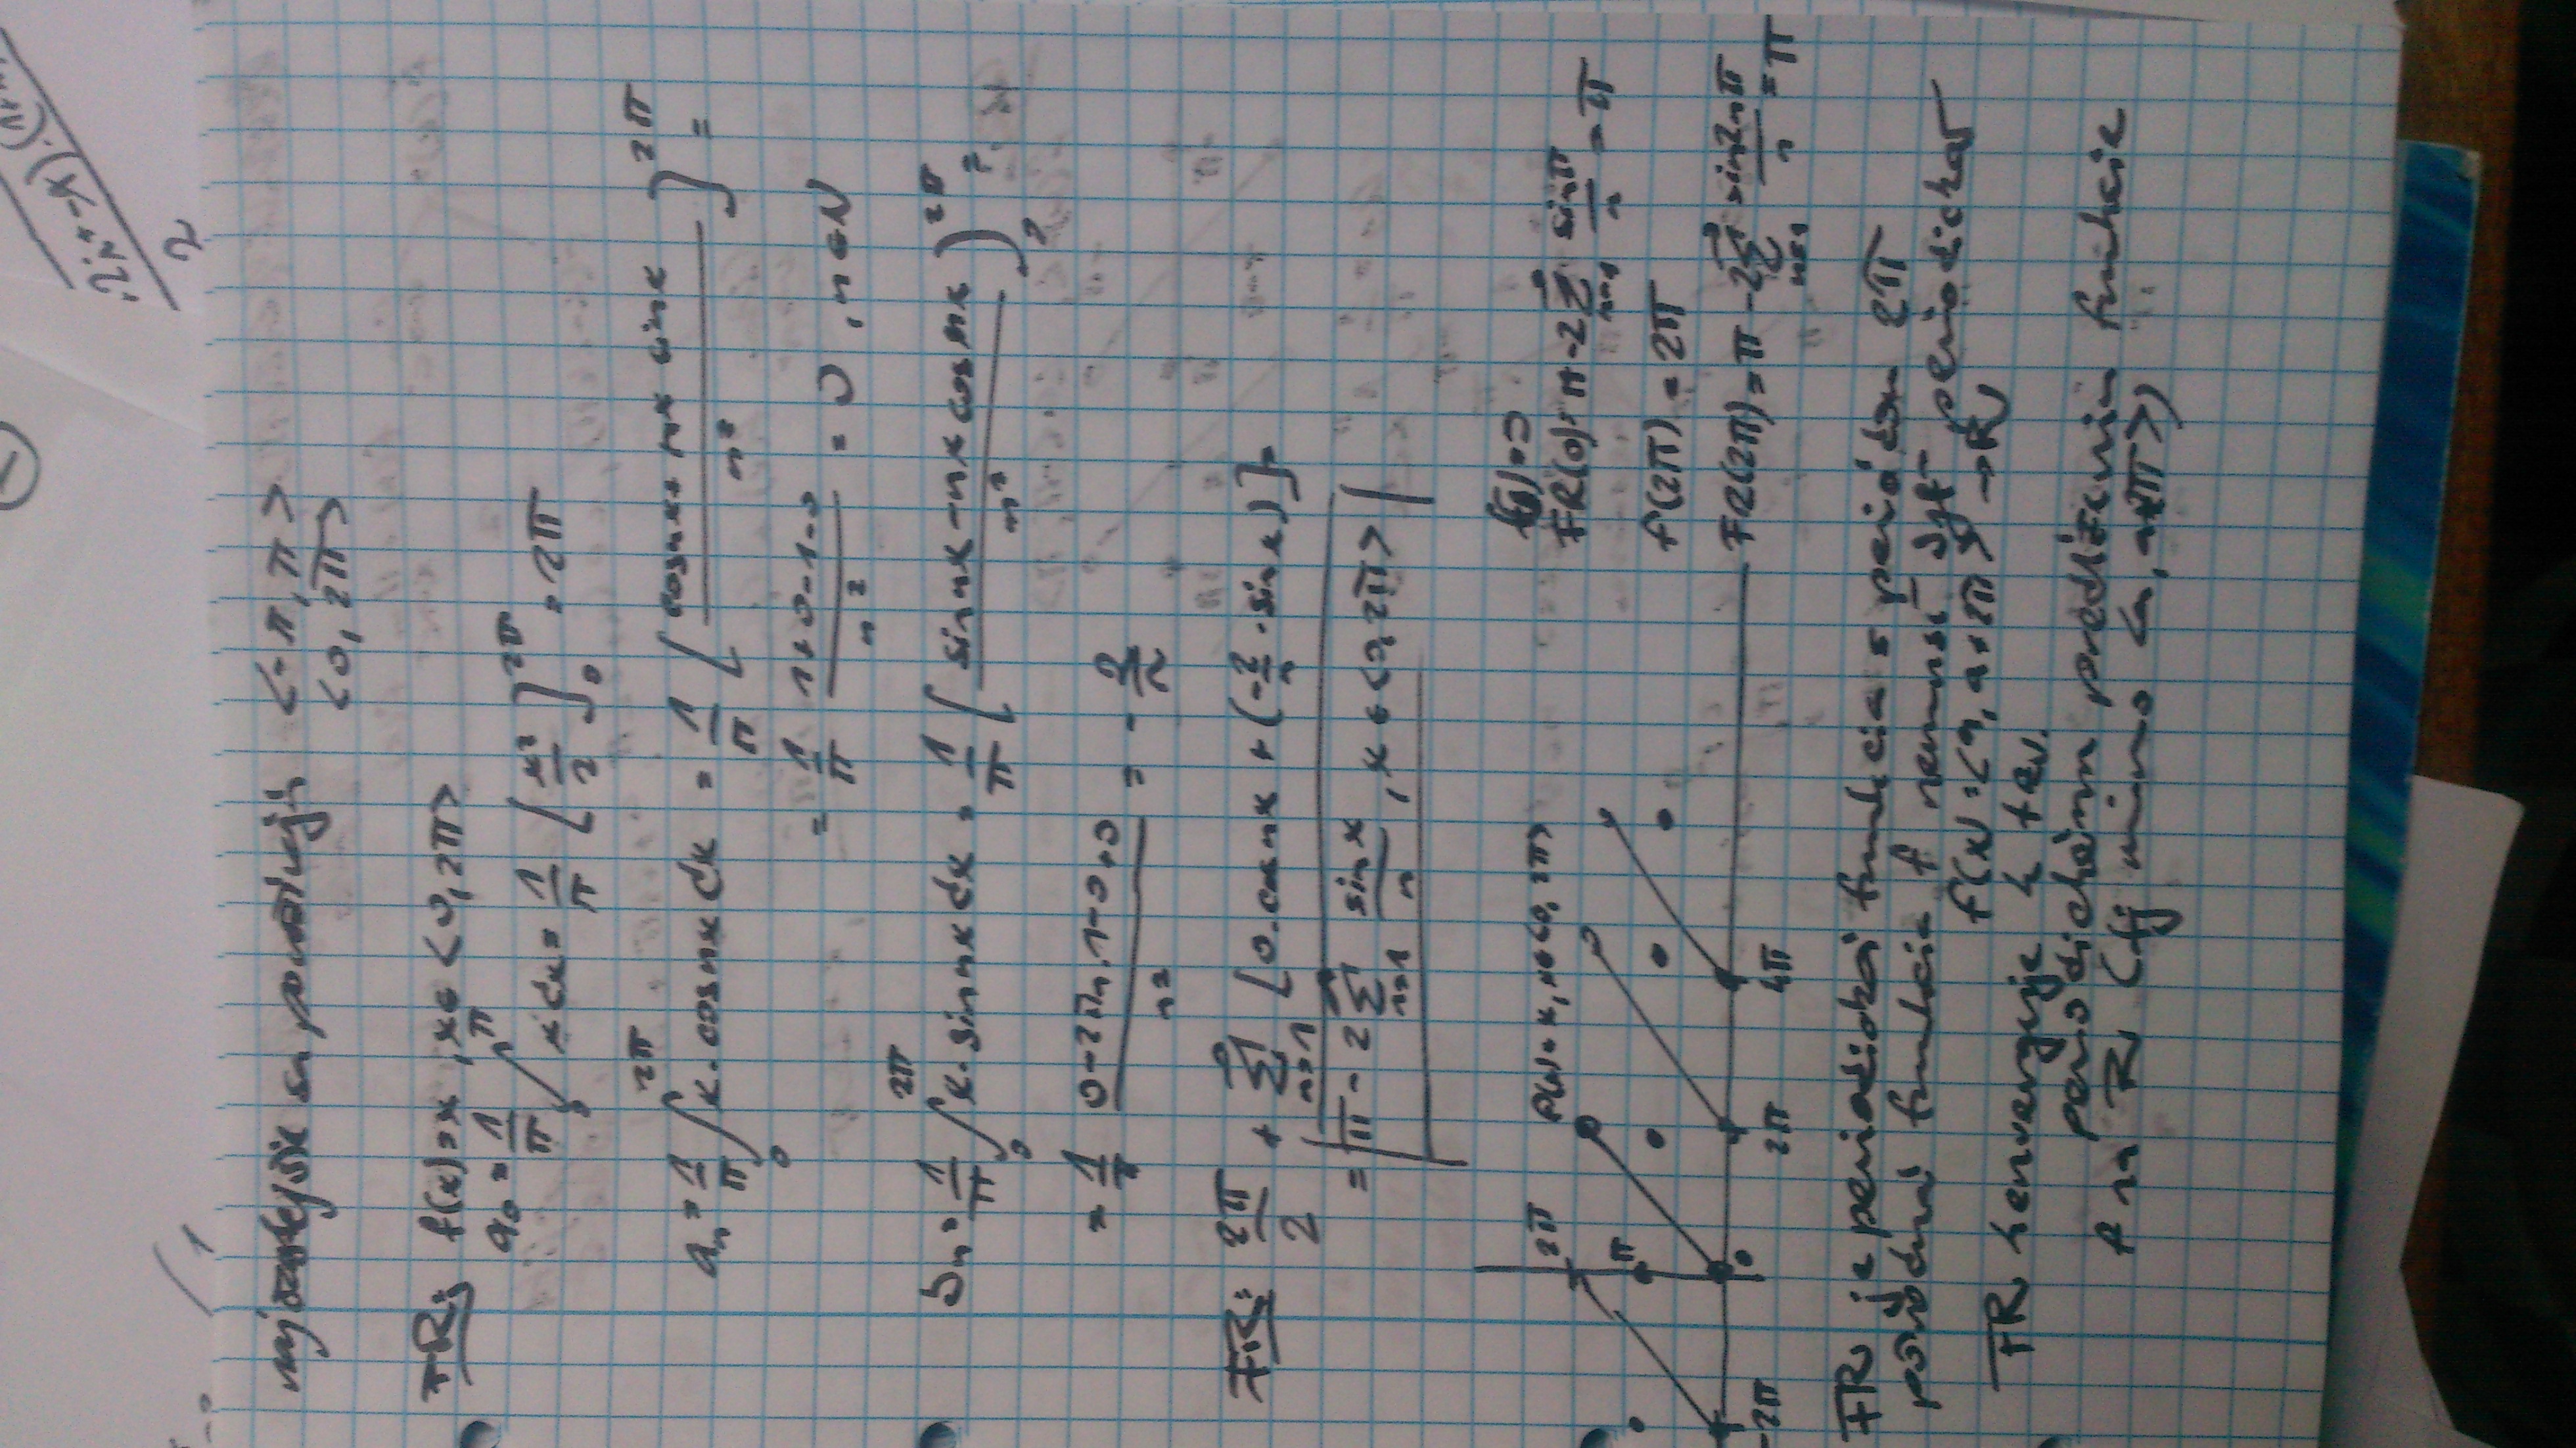 2i+-4).(1+
2
1
najčastejšie sa používajú <-π, π>
<0, 2π>
FR: f(x)=x, x∈<0, 2π>
a₀ = 1/π ∫₀^π x dx = 1/π [x²/2]₀^2π = 2π
aₙ = 1/π ∫₀^2π x. cosnx dx = 1/π [(cosnx + nx sinx)/n²]^2π =
= 1/π (1+0-1-0)/n² = 0, n∈N
bₙ = 1/π ∫₀^2π x. sin nx dx = 1/π [(sin nx - nx cos nx)/n²]₀^2π =
= 1/π (0-2πn.1-0+0)/n² = -2/n
FR: 2π/2 + ∑ₙ₌₁^∞ [0.cos nx + (-2/n . sin x)] =
= π - 2∑ₙ₌₁^∞ sin x/n, x∈<0, 2π>
2π f(x)=x, x∈<0, 2π>
π
-2π 0 2π 4π
FR(0) = π - 2∑ₙ₌₁^∞ sinπ/n = π
f(2π) = 2π
FR(2π) = π - 2∑ₙ₌₁^∞ sin2nπ/n = π
FR je periodická funkcia s periódou 2π
pôvodná funkcia f nemusí byť periodická
f(x): <a, a+2π> → R
FR konverguje k tzv.
periodickému predĺženiu funkcie
f na R (tj mimo <a, a+2π>)